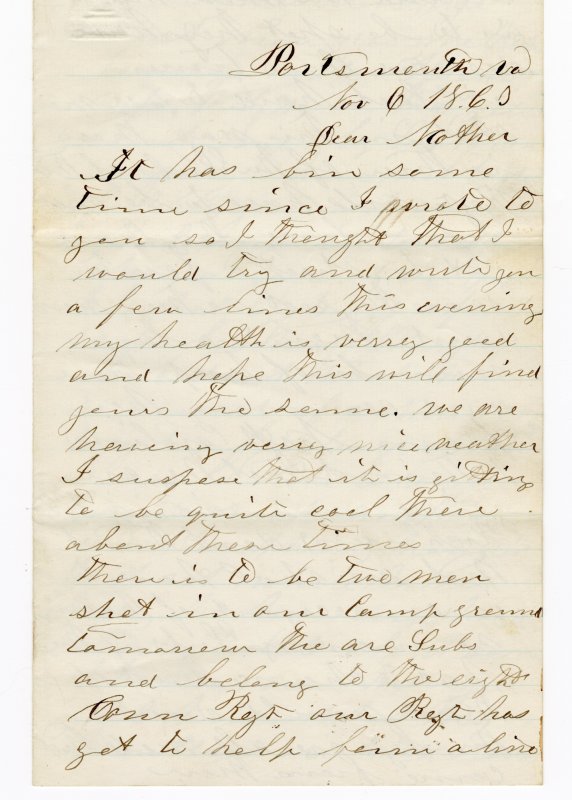 Portsmouth va
Nov 6 1863
Dear Mother
It has bin some
time since I wrote to
you so I thought that I
would try and write you
a few lines this evening
my health is verry good
and hope this will find
yours the same. we are
haveing verry nice weather
I suspose that it is gitting
to be quite cool there
about these times
there is to be two men
shot in our Camp ground
tomorrow the are Subs
and belong to the eight
Conn Regt our Regt has
got to help form a line